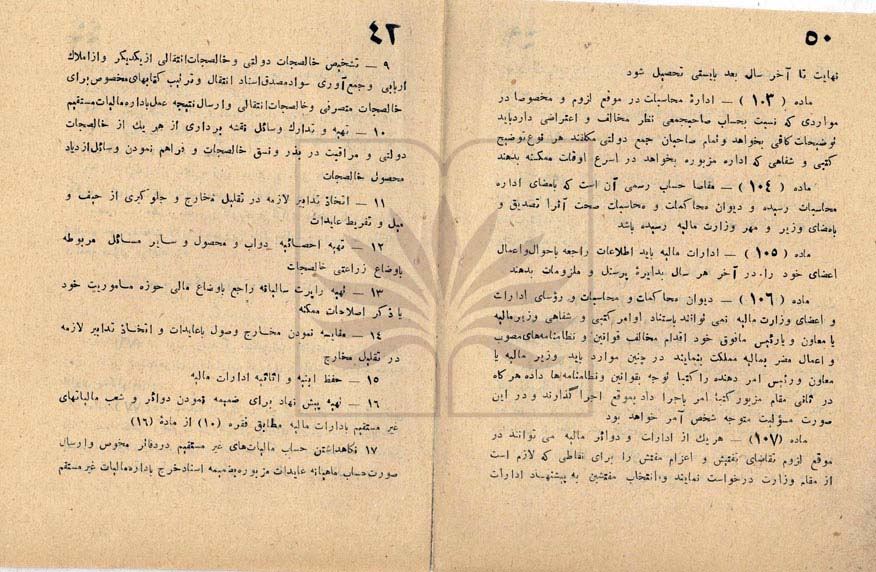 ۵۰
نهایت تا آخر سال بعد بایستی تحصیل شود
ماده (۱۰۳) — ادارهٔ محاسبات در موقع لزوم و مخصوصا در
مواردی که نسبت بحساب صاحبجمعی نظر مخالف و اعتراضی دارد باید
توضیحات کافی بخواهد و تمام صاحبان جمع دولتی مکلفند هر نوع توضیح
کتبی و شفاهی که اداره مزبوره بخواهد در اسرع اوقات ممکنه بدهند
ماده (۱۰۴) — مفاصا حساب رسمی آن است که بامضای اداره
محاسبات رسیده و دیوان محاکمات و محاسبات صحت آنرا تصدیق و
بامضای وزیر و مهر وزارت مالیه رسیده باشد
ماده (۱۰۵) — ادارات مالیه باید اطلاعات راجعه باحوال و اعمال
اعضای خود را در آخر هر سال بدایرهٔ پرسنل و ملزومات بدهند
ماده (۱۰۶) — دیوان محاکمات و محاسبات و رؤسای ادارات
و اعضای وزارت مالیه نمی توانند باستناد اوامر کتبی و شفاهی وزیر مالیه
یا معاون و یا رئیس مافوق خود اقدام مخالف قوانین و نظامنامه‌های مصوب
و اعمال مضر بمالیه مملکت بنمایند در چنین موارد باید وزیر مالیه یا
معاون و رئیس امر دهنده را کتبا توجه بقوانین ونظامنامه‌ها داده هرگاه
در ثانی مقام مزبور کتبا امر باجرا داد بموقع اجرا گذارند و در این
صورت مسؤلیت متوجه شخص آمر خواهد بود
ماده (۱۰۷) — هر یک از ادارات و دوائر مالیه می توانند در
موقع لزوم تقاضای تفتیش و اعزام مفتش را برای نقاطی که لازم است
از مقام وزارت درخواست نمایند و انتخاب مفتشین به پیشنهاد ادارات
۴۲
۹ — تشخیص خالصجات دولتی و خالصجات انتقالی از یکدیگر و از املاک
اربابی و جمع آوری سواد مصدق اسناد انتقال و ترتیب کتابهای مخصوص برای
خالصجات متصرفی و خالصجات انتقالی و ارسال نتیجه عمل باداره مالیات مستقیم
۱۰ — تهیه و تدارک وسائل نقشه برداری از هر یک از خالصجات
دولتی و مراقبت در بذر و نسق خالصجات و فراهم نمودن وسائل ازدیاد
محصول خالصجات
۱۱ — اتخاذ تدابیر لازمه در تقلیل مخارج و جلوگیری از حیف و
میل و تفریط عایدات
۱۲ — تهیه احصائیه دواب و محصول و سایر مسائل مربوطه
باوضاع زراعتی خالصجات
۱۳ — تهیه راپرت سالیانه راجع باوضاع مالی حوزه ماموریت خود
با ذکر اصلاحات ممکنه
۱۴ — مقایسه نمودن مخارج وصول باعایدات و اتخاذ تدابیر لازمه
در تقلیل مخارج
۱۵ — حفظ ابنیه و اثاثیه ادارات مالیه
۱۶ — تهیه پیش نهاد برای ضمیمه نمودن دوائر و شعب مالیاتهای
غیر مستقیم بادارات مالیه مطابق فقره (۱۰) از مادهٔ (۱۶)
۱۷ نگاهداشتن حساب مالیات‌های غیر مستقیم در دفاتر مخصوص و ارسال
صورت حساب ماهیانه عایدات مزبوره بضمیمه اسناد خرج باداره مالیات غیر مستقم